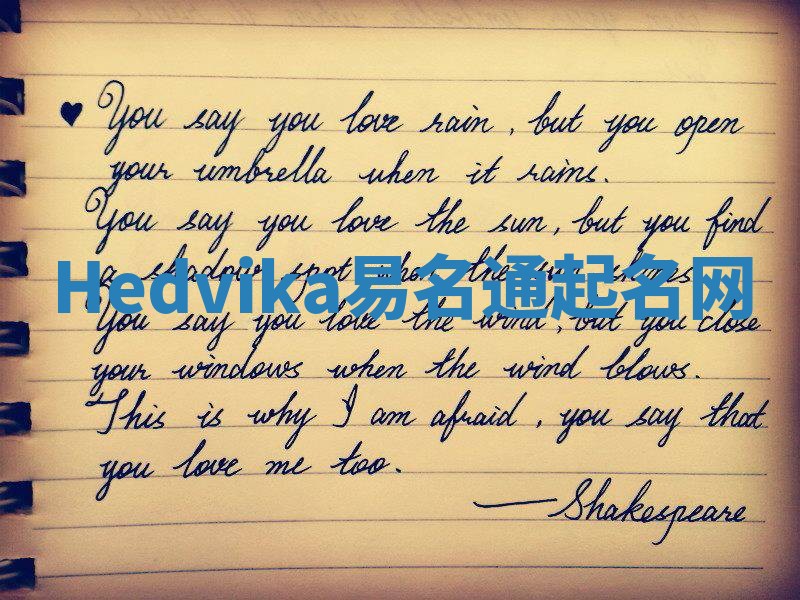 ♥ You say you love rain, but you open
your umbrella when it rains.
You say you love the sun, but you find
a shadow spot when the sun shines.
Hedvika易名通起名网
You say you love the wind, but you close
your windows when the wind blows.
This is why I am afraid, you say that
you love me too.
—Shakespeare